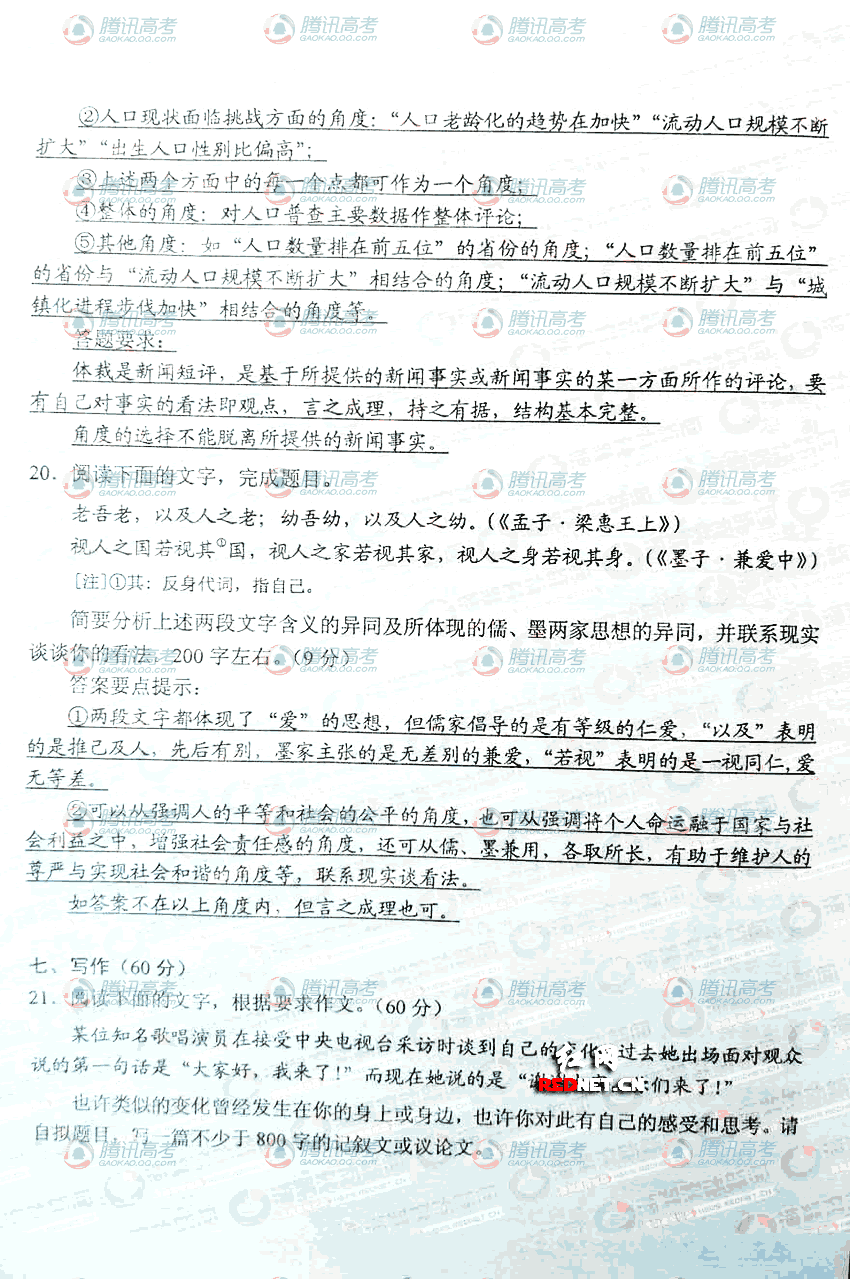 腾讯高考 腾讯高考 腾讯高考 腾讯高考
GAOKAO.QQ.COM GAOKAO.QQ.COM GAOKAO.QQ.COM GAOKAO.QQ.COM
②人口现状面临挑战方面的角度：“人口老龄化的趋势在加快”“流动人口规模不断
扩大”“出生人口性别比偏高”；
③上述两个方面中的每一个点都可作为一个角度；
④整体的角度：对人口普查主要数据作整体评论；
⑤其他角度：如“人口数量排在前五位”的省份的角度；“人口数量排在前五位”
的省份与“流动人口规模不断扩大”相结合的角度；“流动人口规模不断扩大”与“城
镇化进程步伐加快”相结合的角度等。
答题要求：
体裁是新闻短评，是基于所提供的新闻事实或新闻事实的某一方面所作的评论，要
有自己对事实的看法即观点，言之成理，持之有据，结构基本完整。
角度的选择不能脱离所提供的新闻事实。
20．阅读下面的文字，完成题目。
老吾老，以及人之老；幼吾幼，以及人之幼。（《孟子·梁惠王上》）
视人之国若视其①国，视人之家若视其家，视人之身若视其身。（《墨子·兼爱中》）
[注]①其：反身代词，指自己。
简要分析上述两段文字含义的异同及所体现的儒、墨两家思想的异同，并联系现实
谈谈你的看法。200字左右。（9分）
答案要点提示：
①两段文字都体现了“爱”的思想，但儒家倡导的是有等级的仁爱，“以及”表明
的是推己及人，先后有别，墨家主张的是无差别的兼爱，“若视”表明的是一视同仁，爱
无等差。
②可以从强调人的平等和社会的公平的角度，也可从强调将个人命运融于国家与社
会利益之中，增强社会责任感的角度，还可从儒、墨兼用，各取所长，有助于维护人的
尊严与实现社会和谐的角度等，联系现实谈看法。
如答案不在以上角度内，但言之成理也可。
七、写作（60分）
21．阅读下面的文字，根据要求作文。（60分）
某位知名歌唱演员在接受中央电视台采访时谈到自己的变化，过去她出场面对观众
说的第一句话是“大家好，我来了！”而现在她说的是“谢 们来了！”
红网
REDNET.CN
也许类似的变化曾经发生在你的身上或身边，也许你对此有自己的感受和思考。请
自拟题目，写一篇不少于800字的记叙文或议论文。